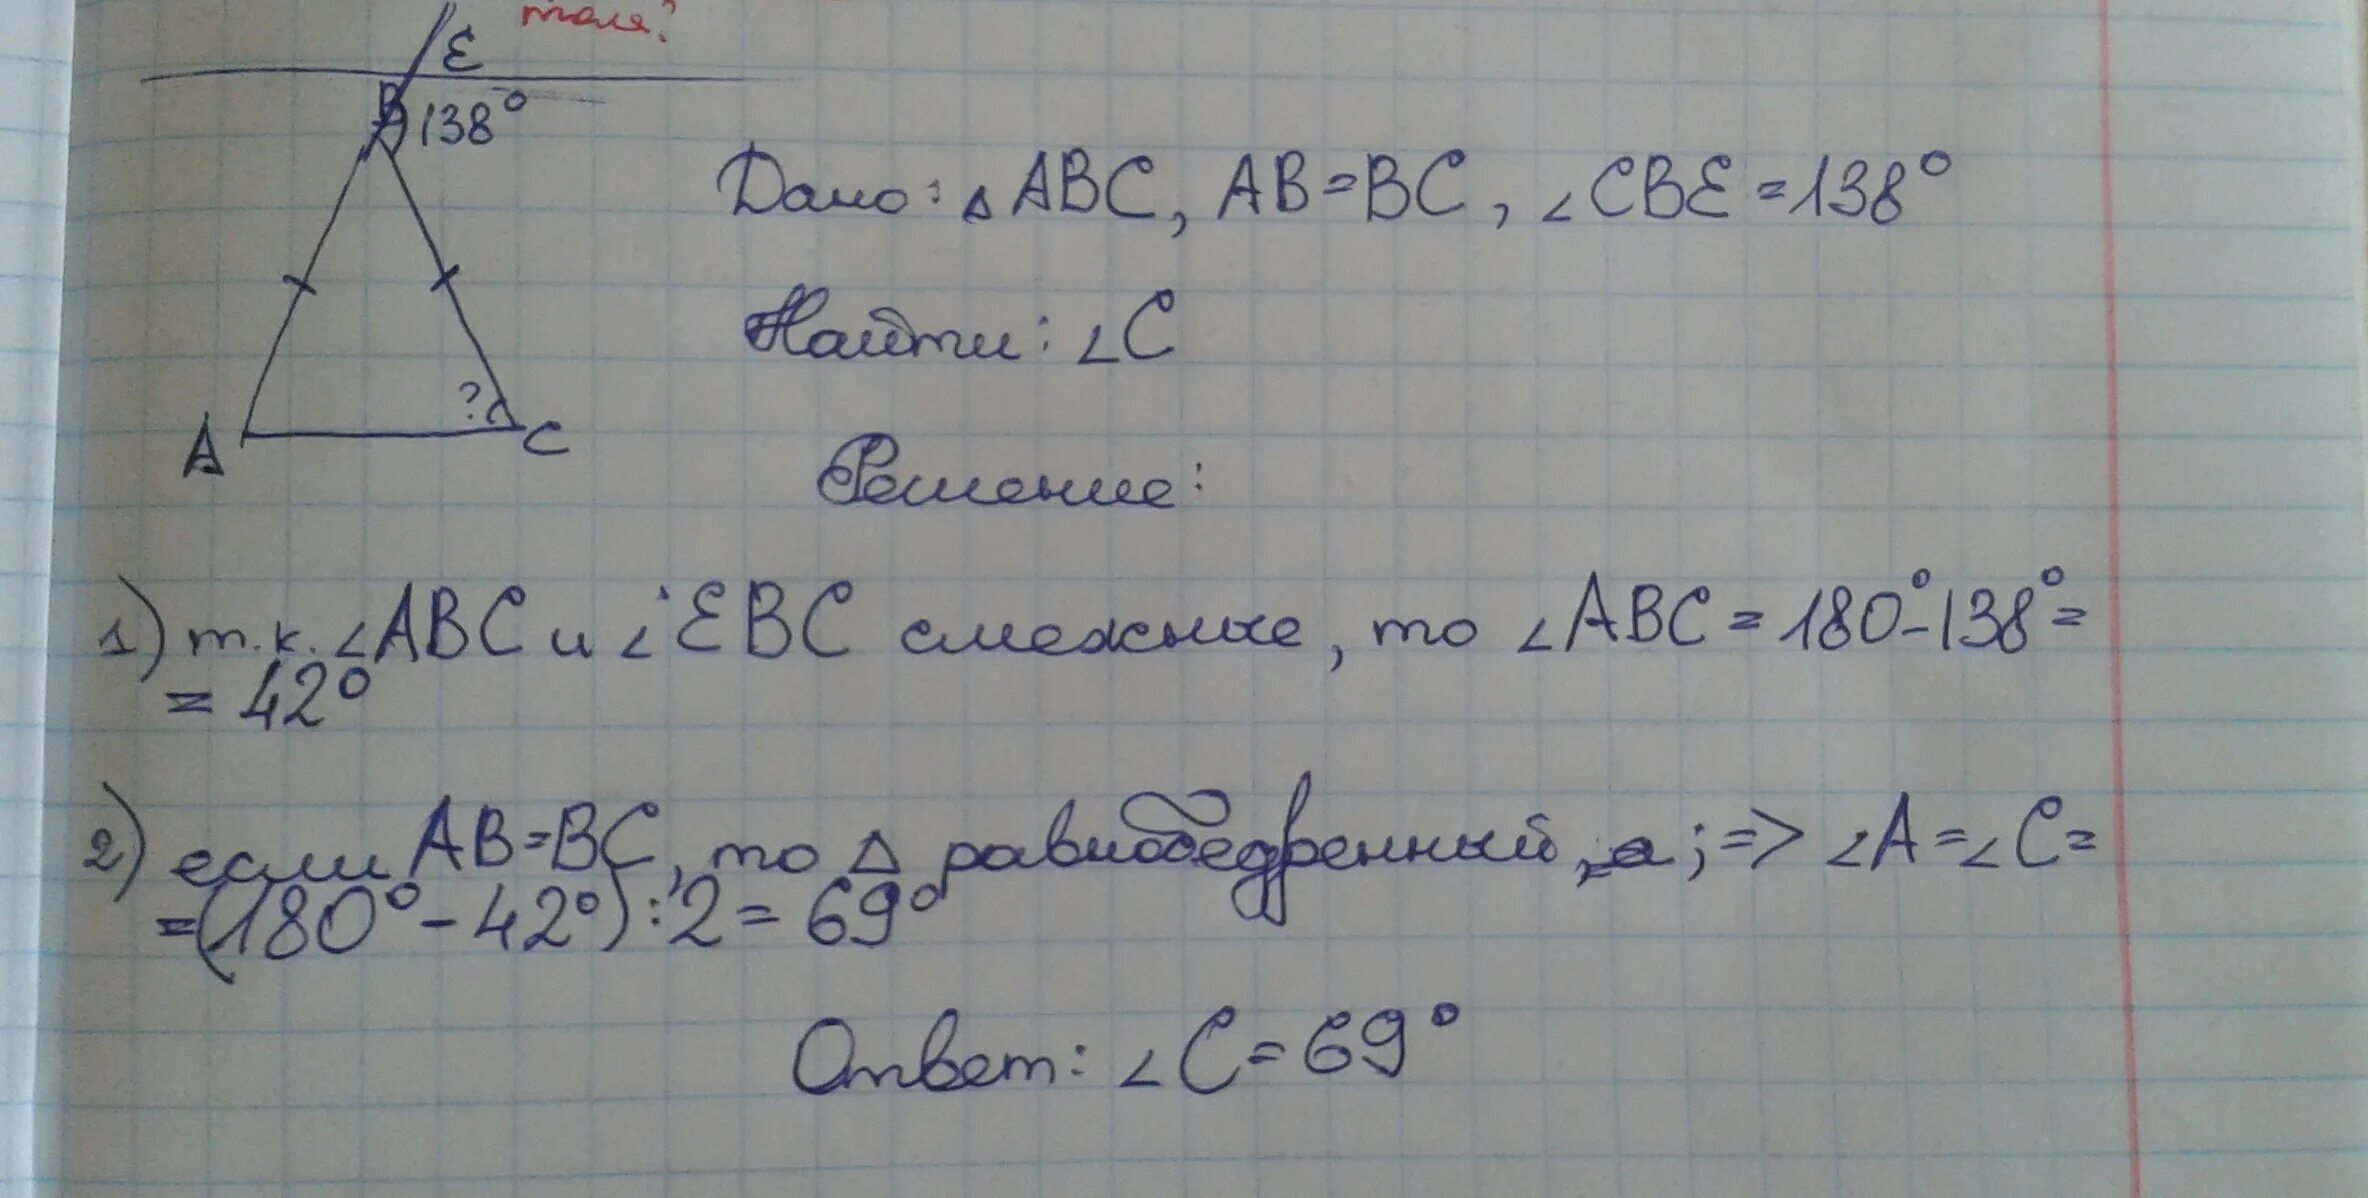 E
B
138°
? C
A
Дано: △ABC, AB=BC, ∠CBE=138°
Найти: ∠C
Решение:
1) т.к. ∠ABC и ∠EBC смежные, то ∠ABC = 180°-138°=
= 42°
2) если AB=BC, то △ равнобедренный, ; => ∠A=∠C=
=(180°-42°):2=69°
Ответ: ∠C=69°